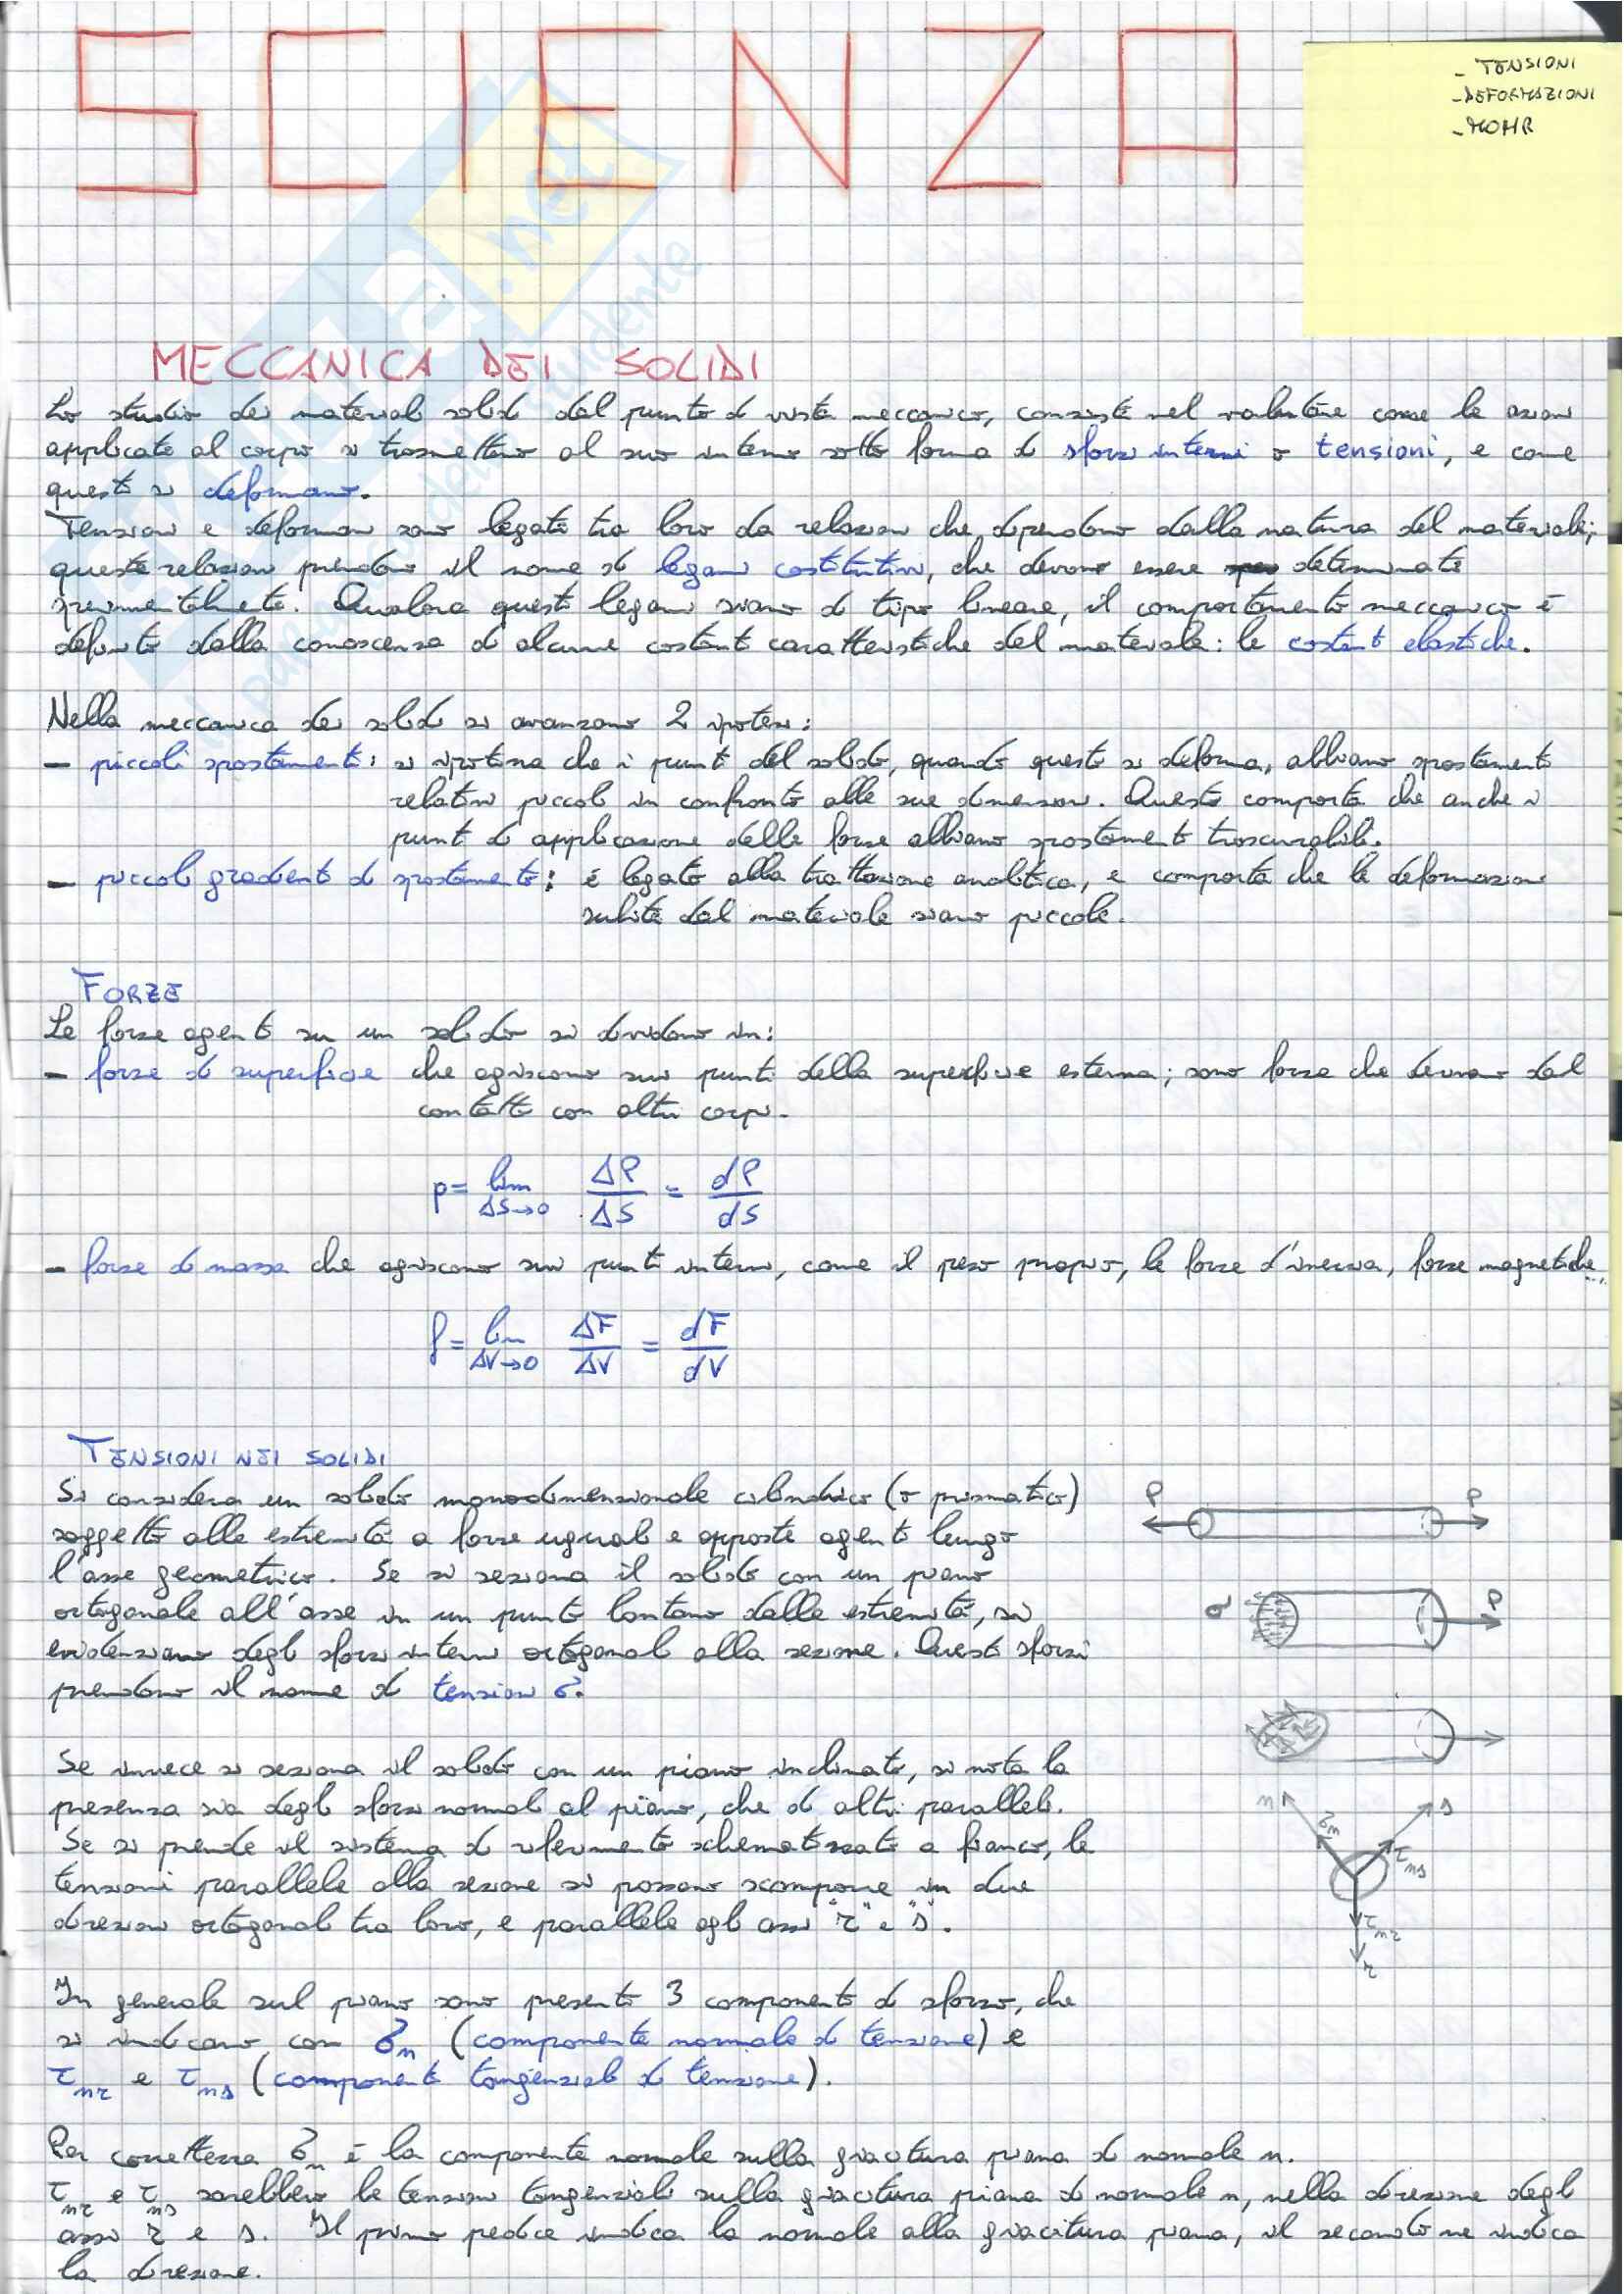 SCIENZA
- TENSIONI
- DEFORMAZIONI
- MOHR
MECCANICA DEI SOLIDI
Lo studio dei materiali solidi dal punto di vista meccanico, consiste nel valutare come le azioni
applicate al corpo si trasmettono al suo interno sotto forma di sforzi interni o tensioni, e come
questi si deformano.
Tensioni e deformazioni sono legate tra loro da relazioni che dipendono dalla natura del materiale;
queste relazioni prendono il nome di legami costitutivi, che devono essere determinati
sperimentalmente. Qualora questi legami siano di tipo lineare, il comportamento meccanico è
definito dalla conoscenza di alcune costanti caratteristiche del materiale: le costanti elastiche.
Nella meccanica dei solidi si avanzano 2 ipotesi:
- piccoli spostamenti: si ipotizza che i punti del solido, quando questo si deforma, abbiano spostamenti
relativi piccoli in confronto alle sue dimensioni. Questo comporta che anche i
punti di applicazione delle forze abbiano spostamenti trascurabili.
- piccoli gradienti di spostamento: è legato alla trattazione analitica, e comporta che le deformazioni
subite dal materiale siano piccole.
FORZE
Le forze agenti su un solido si dividono in:
- forze di superficie che agiscono sui punti della superficie esterna; sono forze che derivano dal
contatto con altri corpi.
p = lim ΔS→0 ΔP/ΔS = dP/dS
- forze di massa che agiscono sui punti interni, come il peso proprio, le forze d'inerzia, forze magnetiche...
f = lim ΔV→0 ΔF/ΔV = dF/dV
TENSIONI NEI SOLIDI
Si considera un solido monodimensionale cilindrico (o prismatico)
soggetto alle estremità a forze uguali e opposte agenti lungo
l'asse geometrico. Se si seziona il solido con un piano
ortogonale all'asse in un punto lontano dalle estremità, si
evidenziano degli sforzi interni ortogonali alla sezione. Questi sforzi
prendono il nome di tensioni σ.
P P
σ P
Se invece si seziona il solido con un piano inclinato, si nota la
presenza sia degli sforzi normali al piano, che di altri paralleli.
Se si prende il sistema di riferimento schematizzato a fianco, le
tensioni parallele alla sezione si possono scomporre in due
direzioni ortogonali tra loro, e parallele agli assi "r" e "s".
n s
σn τns
τnr
r
In generale sul piano sono presenti 3 componenti di sforzo, che
si indicano con σn (componente normale di tensione) e
τnr e τns (componenti tangenziali di tensione).
Per correttezza σn è la componente normale sulla giacitura piana di normale n.
τnr e τns sarebbero le tensioni tangenziali sulla giacitura piana di normale n, nella direzione degli
assi r e s. Il primo pedice indica la normale alla giacitura piana, il secondo ne indica
la direzione.